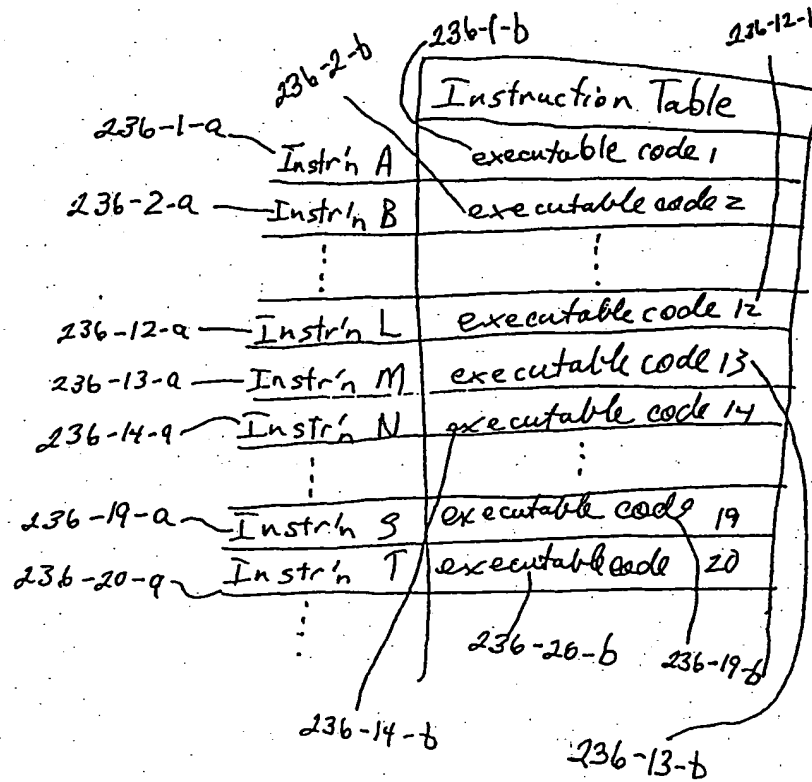 236-1-b
236-12-
236-2-b
Instruction Table
236-1-a
Instr'n A executable code 1
236-2-a Instr'n B executable code 2
236-12-a Instr'n L executable code 12
236-13-a Instr'n M executable code 13
236-14-a Instr'n N executable code 14
236-19-a Instr'n S executable code 19
236-20-a Instr'n T executable code 20
236-20-b 236-19-b
236-14-b
236-13-b